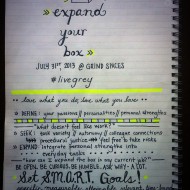 » expand
your
box »
JULY 31st 2013 @ GRIND SPACES
#livegrey
love what you do, live what you love
DEFINE: your passions // personality // personal strengths
"what doesn't feel like work?"
SEEK: both variety // relevant connections
procedural justice // feel free to take risks
EXPAND: integrate personal strengths into
everyday tasks
"how can I expand the box in my current job?"
BE OPEN, BE CURIOUS, BE HUMBLE, ASK WHY? A LOT
Set S.M.A.R.T. Goals!